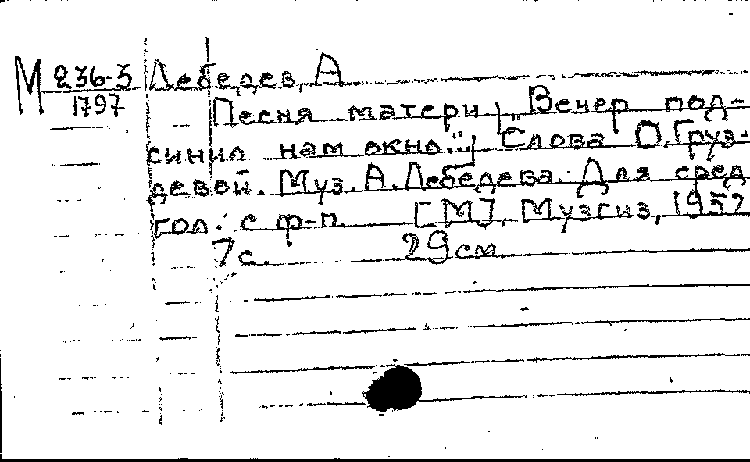 М 236-3 Лебедев, А
1797
Песня матери [„Вечер под-
синил нам окно.."] Слова О. Груз-
девой. Муз. А. Лебедева. Для сред.
гол. с ф-п. [М], Музгиз, 1957
7 с. 29 см